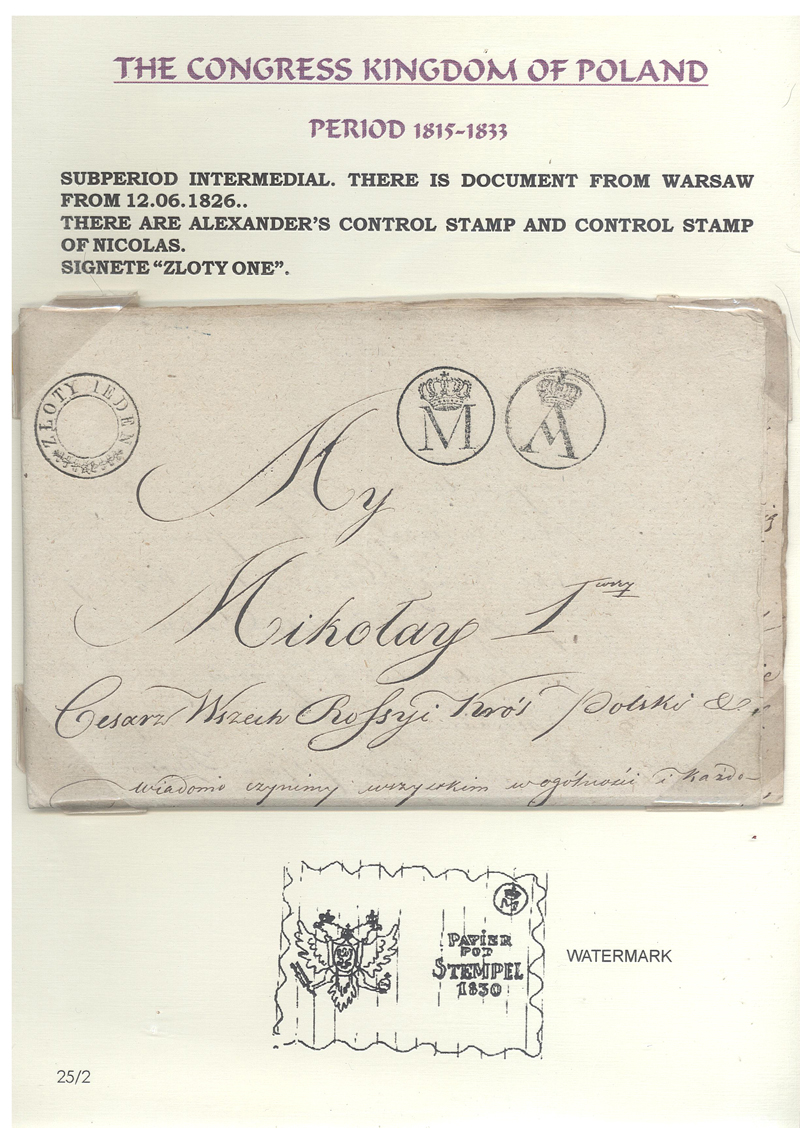 THE CONGRESS KINGDOM OF POLAND
PERIOD 1815-1833
SUBPERIOD INTERMEDIAL. THERE IS DOCUMENT FROM WARSAW
FROM 12.06.1826..
THERE ARE ALEXANDER'S CONTROL STAMP AND CONTROL STAMP
OF NICOLAS.
SIGNETE "ZLOTY ONE".
ZŁOTY IEDEN
M
A
My
Mikołay 1wszy
Cesarz Wszech Rossyi Król Polski &.
wiadomo czynimy wszystkim w ogólności i każdo-
PAPIER
POD
STEMPEL
1830
WATERMARK
25/2